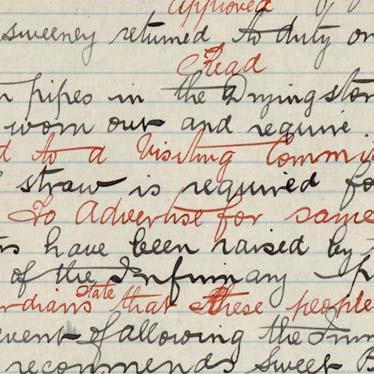 Approved
Sweeney returned to duty on
Read
pipes in the Drying stor
worn out and require
d to a Visiting Commi
straw is required fo
To Advertise for same
rs have been raised by
of the Infirmary
State
rdians that these people
event of allowing the
recommends Sweet B